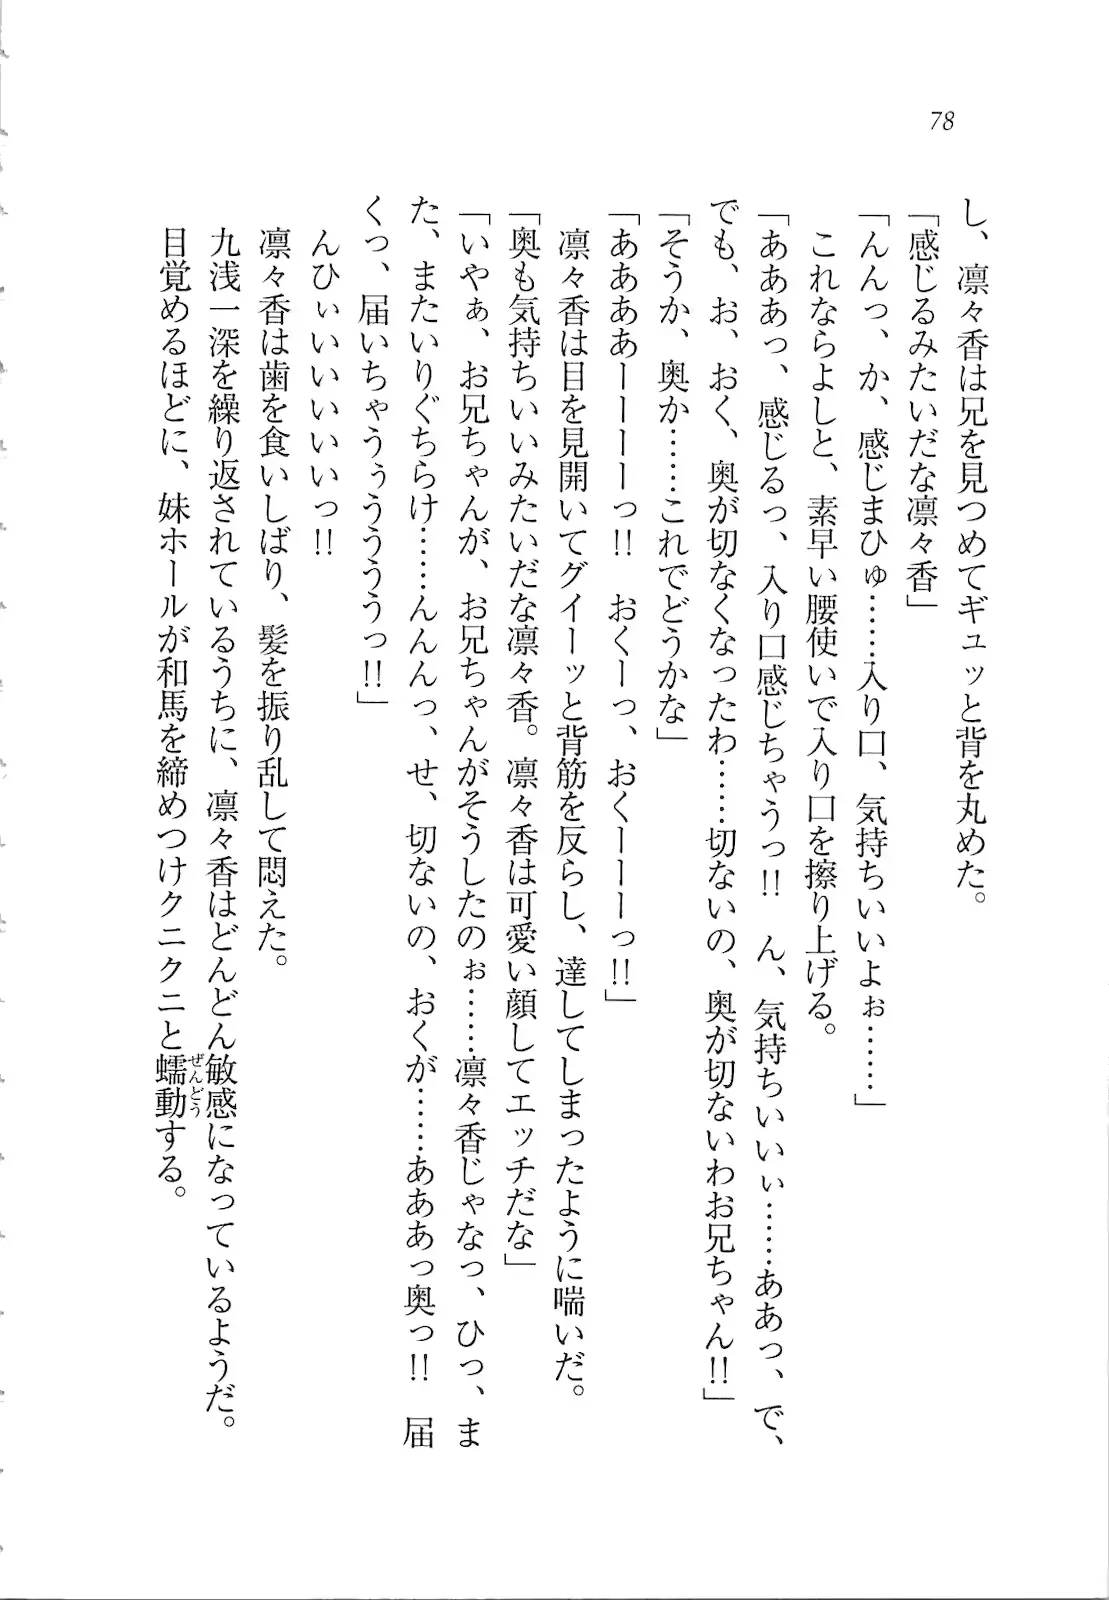 78
し、凛々香は兄を見つめてギュッと背を丸めた。
「感じるみたいだな凛々香」
「んんっ、か、感じまひゅ……入り口、気持ちいいよぉ……」
これならよしと、素早い腰使いで入り口を擦り上げる。
「あああっ、感じるっ、入り口感じちゃうっ!!　ん、気持ちいいぃ……ああっ、で、
でも、お、おく、奥が切なくなったわ……切ないの、奥が切ないわお兄ちゃん!!」
「そうか、奥か……これでどうかな」
「ああああーーーーっ!!　おくーっ、おくーーーっ!!」
凛々香は目を見開いてグイーッと背筋を反らし、達してしまったように喘いだ。
「奥も気持ちいいみたいだな凛々香。凛々香は可愛い顔してエッチだな」
「いやぁ、お兄ちゃんが、お兄ちゃんがそうしたのぉ……凛々香じゃなっ、ひっ、ま
た、またいりぐちらけ……んんんっ、せ、切ないの、おくが……あああっ奥っ!!　届
くっ、届いちゃうぅううううっ!!」
んひぃいいいいいっ!!
凛々香は歯を食いしばり、髪を振り乱して悶えた。
九浅一深を繰り返されているうちに、凛々香はどんどん敏感になっているようだ。
目覚めるほどに、妹ホールが和馬を締めつけクニクニと蠕動する。
ぜんどう